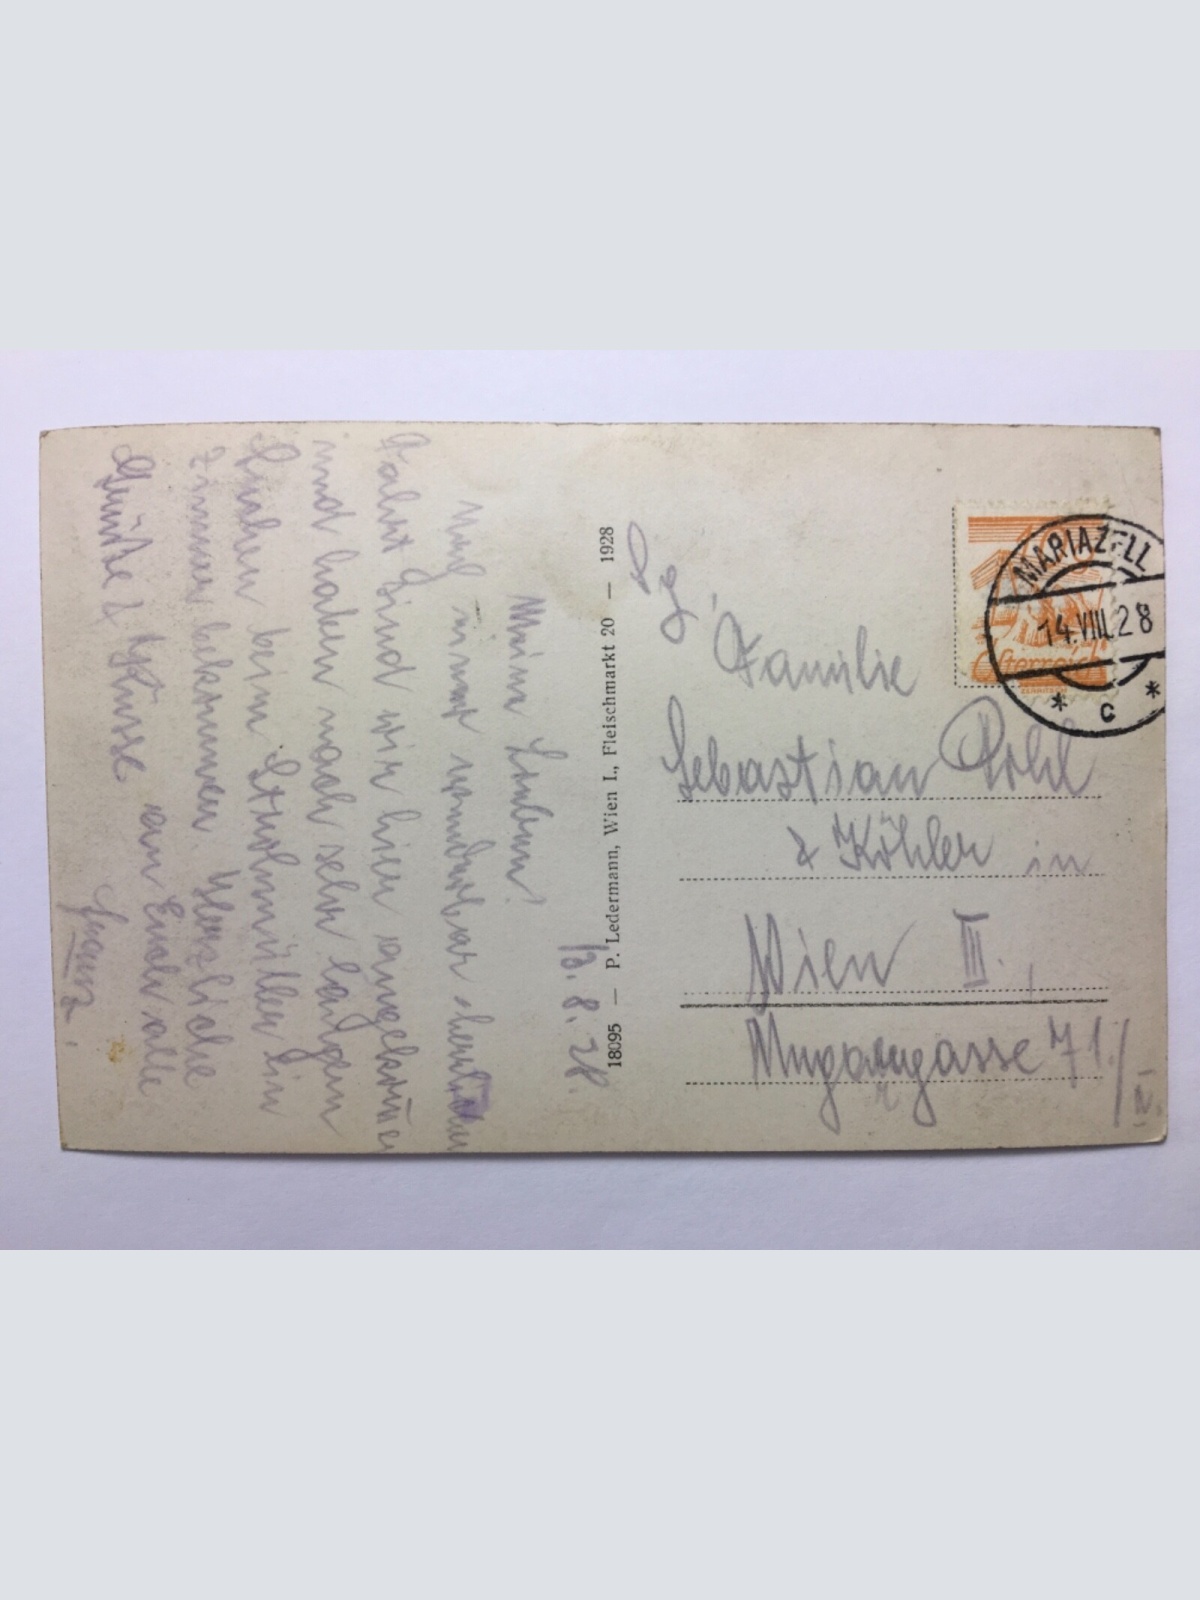 13.8.28.
Meine Lieben!
Nach einer wunderbar herrlichen
Fahrt sind wir hier angekommen
und haben nach sehr langem
Suchen beim Strohmüller ein
Zimmer bekommen. Herzliche
Grüsse & Küsse an Euch alle
Franz.
18095 — P. Ledermann, Wien I., Fleischmarkt 20 — 1928
MARIAZELL
14.VIII.28
* C *
10
Österreich
Familie
Sebastian Pohl
& Köhler in
Wien III.,
Ungargasse 71/